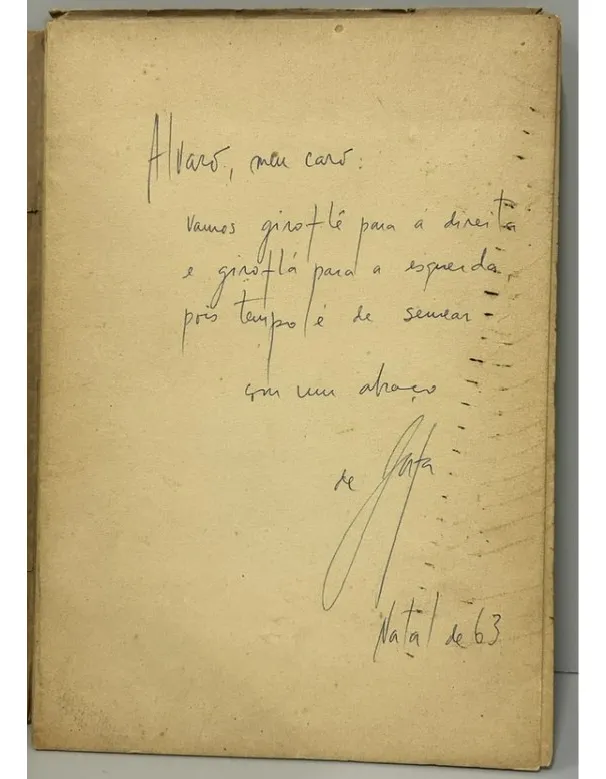 Alvaro, meu caro:
vamos giroflê para a direita
e giroflá para a esquerda,
pois tempo é de semear
com um abraço
de
Natal de 63